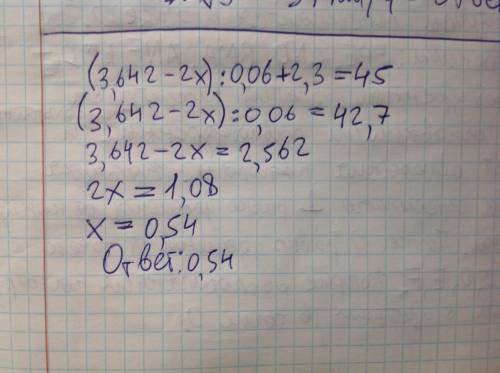 (3,642-2x):0,06+2,3=45
(3,642-2x):0,06=42,7
3,642-2x=2,562
2x=1,08
x=0,54
Ответ:0,54